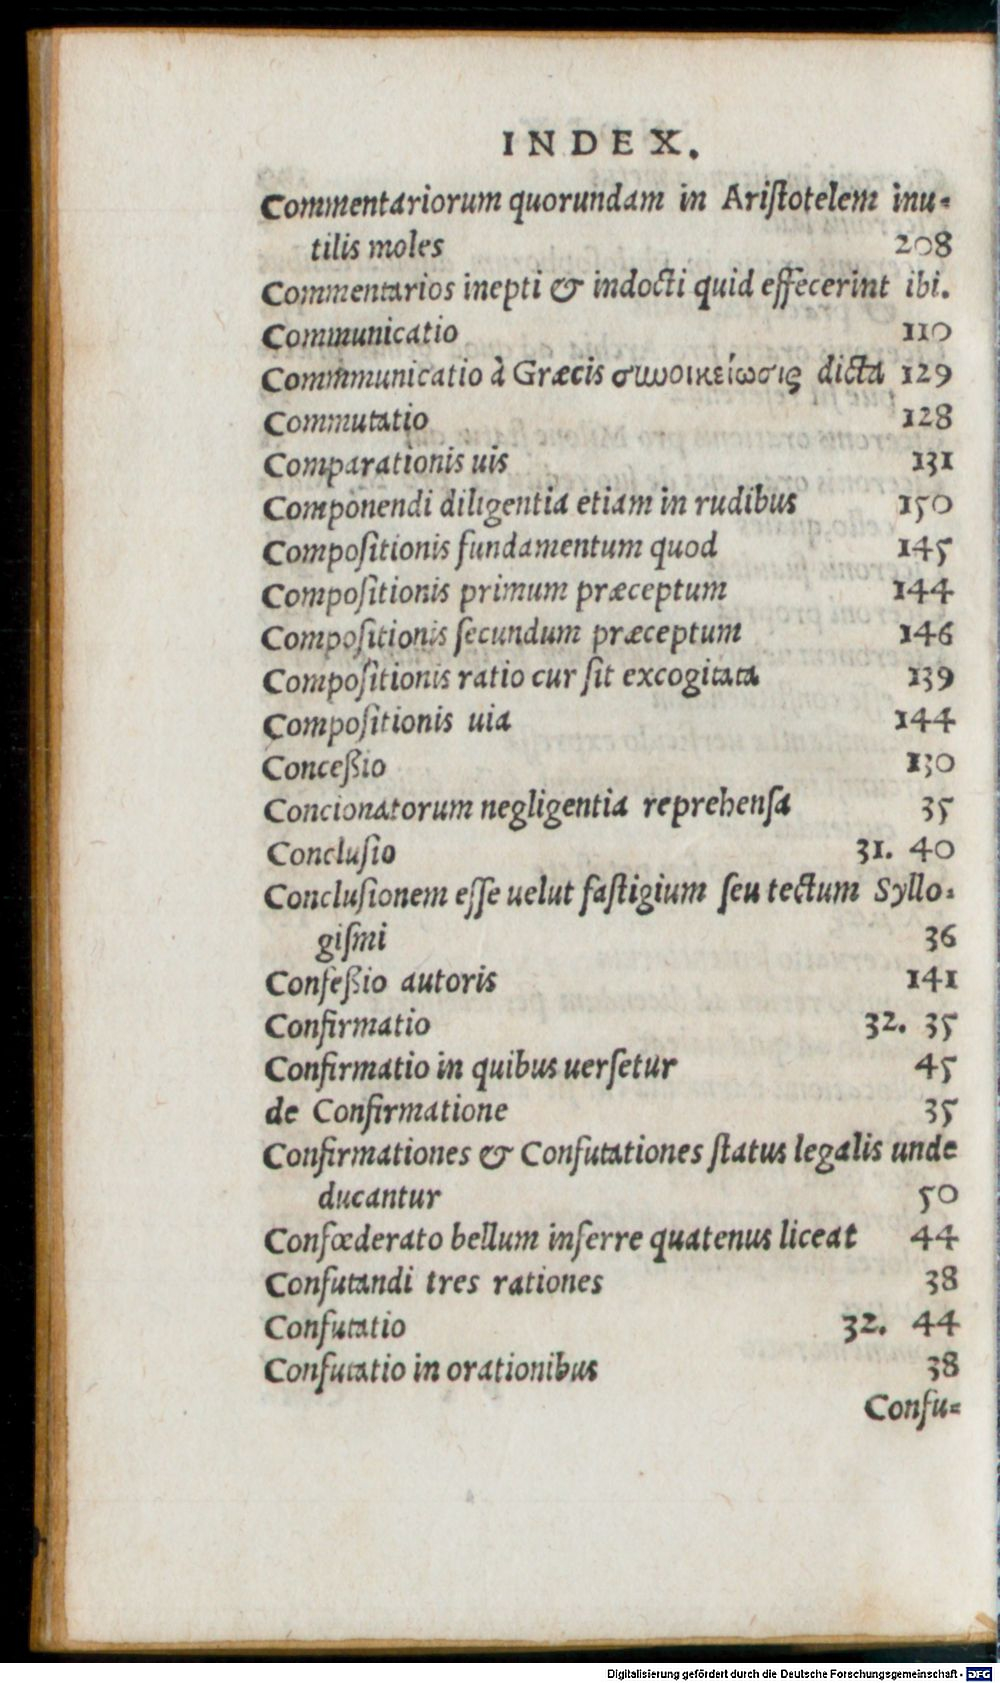 INDEX.
Commentariorum quorundam in Ariſtotelem inu-
tilis moles 208
Commentarios inepti & indocti quid effecerint ibi.
Communicatio 110
Commmunicatio à Græcis συνοικείωσις dicta 129
Commutatio 128
Comparationis uis 131
Componendi diligentia etiam in rudibus 150
Compoſitionis fundamentum quod 145
Compoſitionis primum præceptum 144
Compoſitionis ſecundum præceptum 146
Compoſitionis ratio cur ſit excogitata 139
Compoſitionis uia 144
Conceßio 130
Concionatorum negligentia reprehenſa 35
Concluſio 31. 40
Concluſionem eſſe uelut faſtigium ſeu tectum Syllo-
giſmi 36
Confeßio autoris 141
Confirmatio 32. 35
Confirmatio in quibus uerſetur 45
de Confirmatione 35
Confirmationes & Confutationes ſtatus legalis unde
ducantur 50
Confœderato bellum inferre quatenus liceat 44
Confutandi tres rationes 38
Confutatio 32. 44
Confutatio in orationibus 38
Confu-
Digitalisierung gefördert durch die Deutsche Forschungsgemeinschaft - DFG